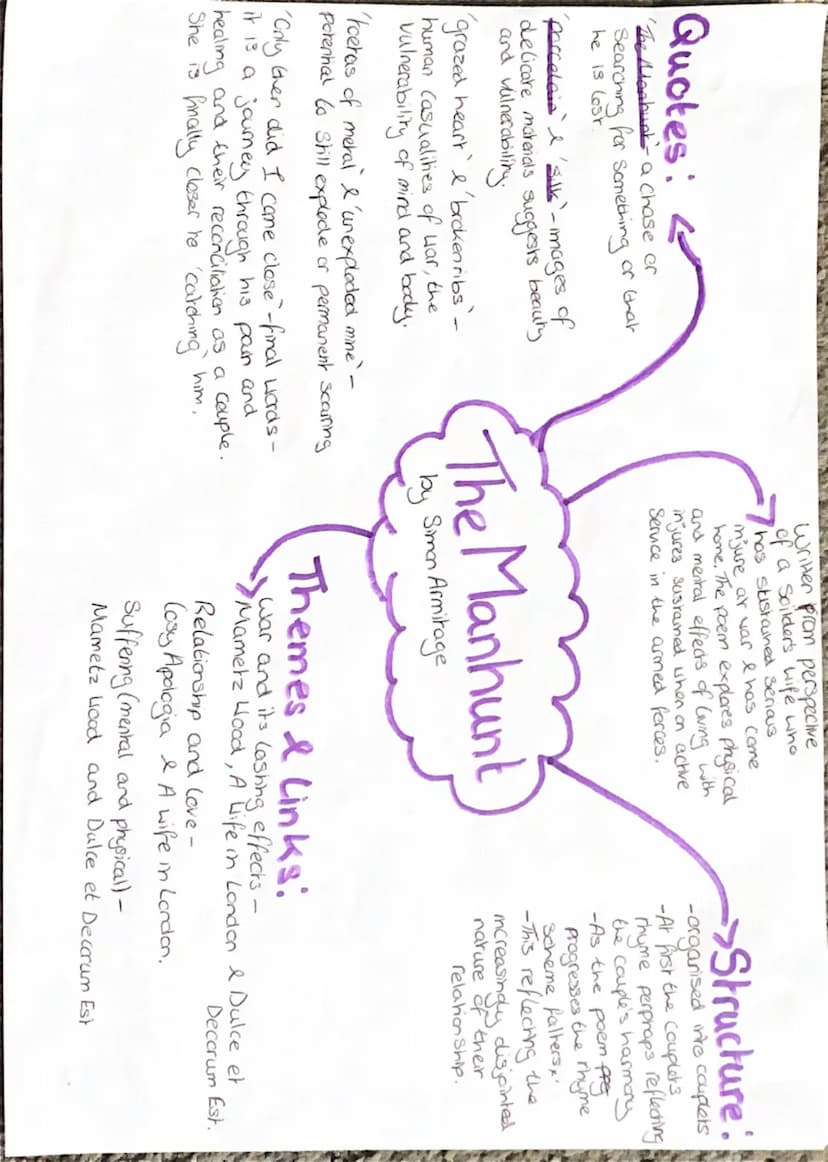 Quotes:
'The Manhunt' - a chase or
searching for something or that
he is lost.
'porcelain' & 'silk' - images of
delicate materials suggests beauty
and vulnerability.
'grazed heart' & 'broken ribs' -
human casualities of war, the
vulnerability of mind and body.
'foetas of metal' & 'unexploded mine' -
potential to still explode or permanent scarring
'Only then did I come close' - final words -
it is a journey through his pain and
healing and their reconciliation as a couple.
She is finally closer to 'catching' him.
The Manhunt
by Simon Armitage
Written from perspective
of a soilder's wife who
has stustained serious
injure at war & has come
home. The poem explores physical
and mental effects of living with
injures sustained when on active
service in the armed forces.
Structure:
- organised into couplets
- At first the couplets
rhyme perphaps reflecting
the couple's harmony
- As the poem
progresses the rhyme
scheme falters.
- This reflecting the
increasingly disjointed
nature of their
relationship.
Themes & Links:
War and its lasting effects -
Mametz Wood, A Wife in London & Dulce et
Decorum Est.
Relationship and love -
Cosy Apologia & A Wife in London.
Suffering (mental and physical) -
Mametz Wood and Dulce et Decorum Est